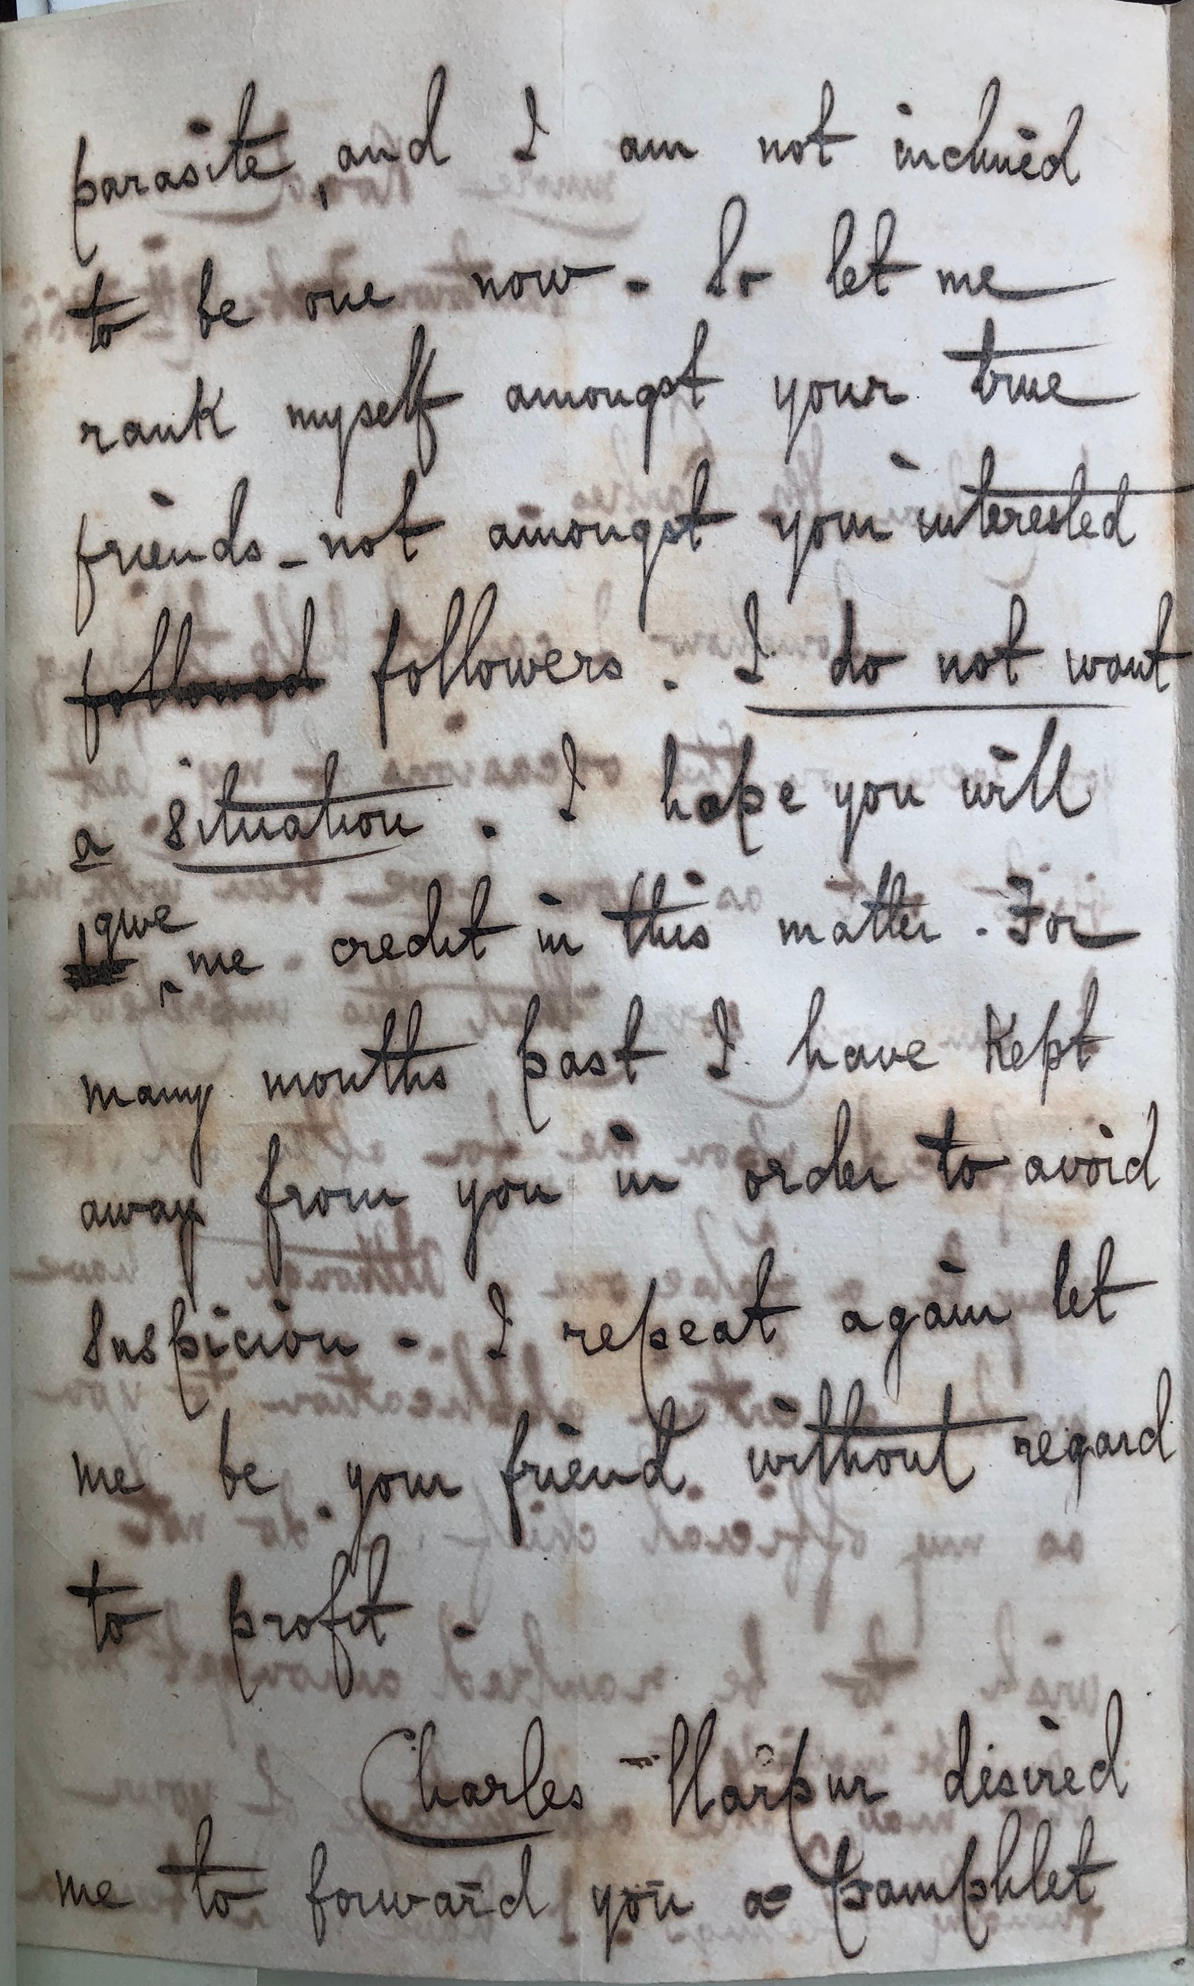 parasite, and I am not inclined
to be one now - So let me
rank myself amongst your true
friends - not amongst your interested
followed followers. I do not want
a situation. I hope you will
give me credit in this matter. For
many months past I have kept
away from you in order to avoid
suspicion - I repeat again let
me be your friend without regard
to profit
Charles Harpur desired
me to forward you a pamphlet